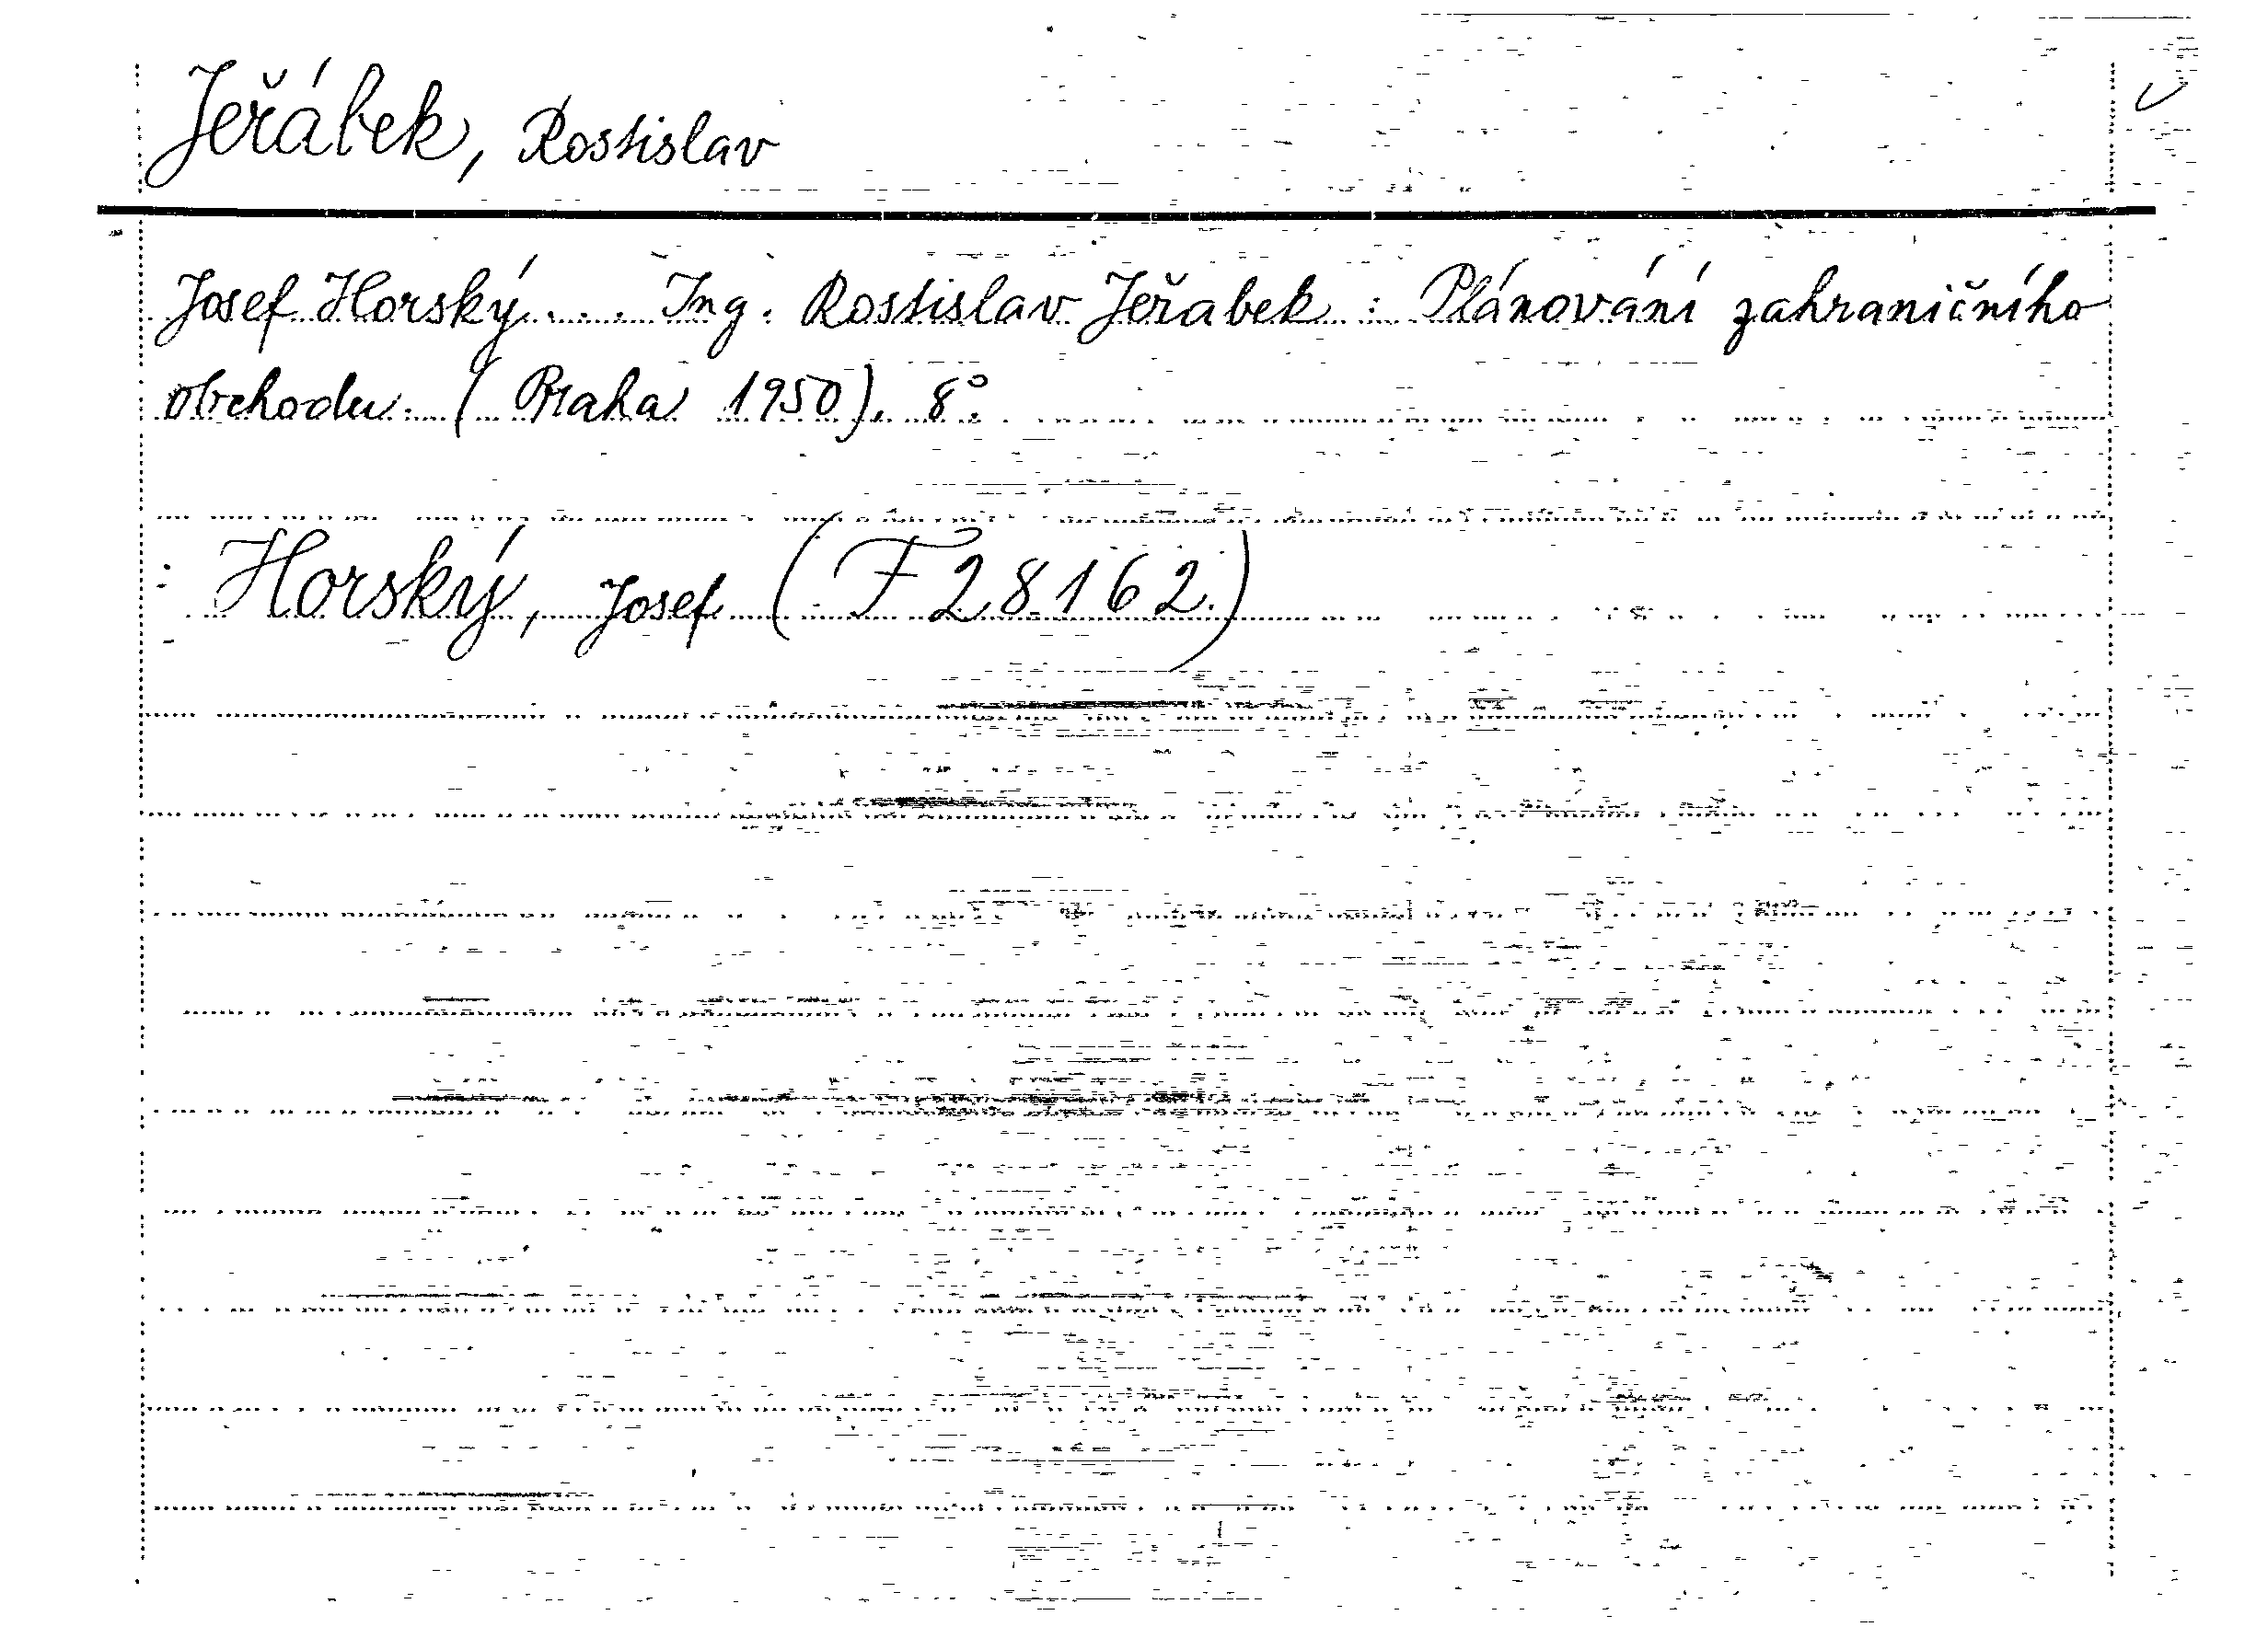 Jeřábek, Rostislav
Josef Horský... Ing. Rostislav Jeřabek : Plánování zahraničního
obchodu. ( Praha 1950). 8°.
: Horský, Josef ( F 28162.)